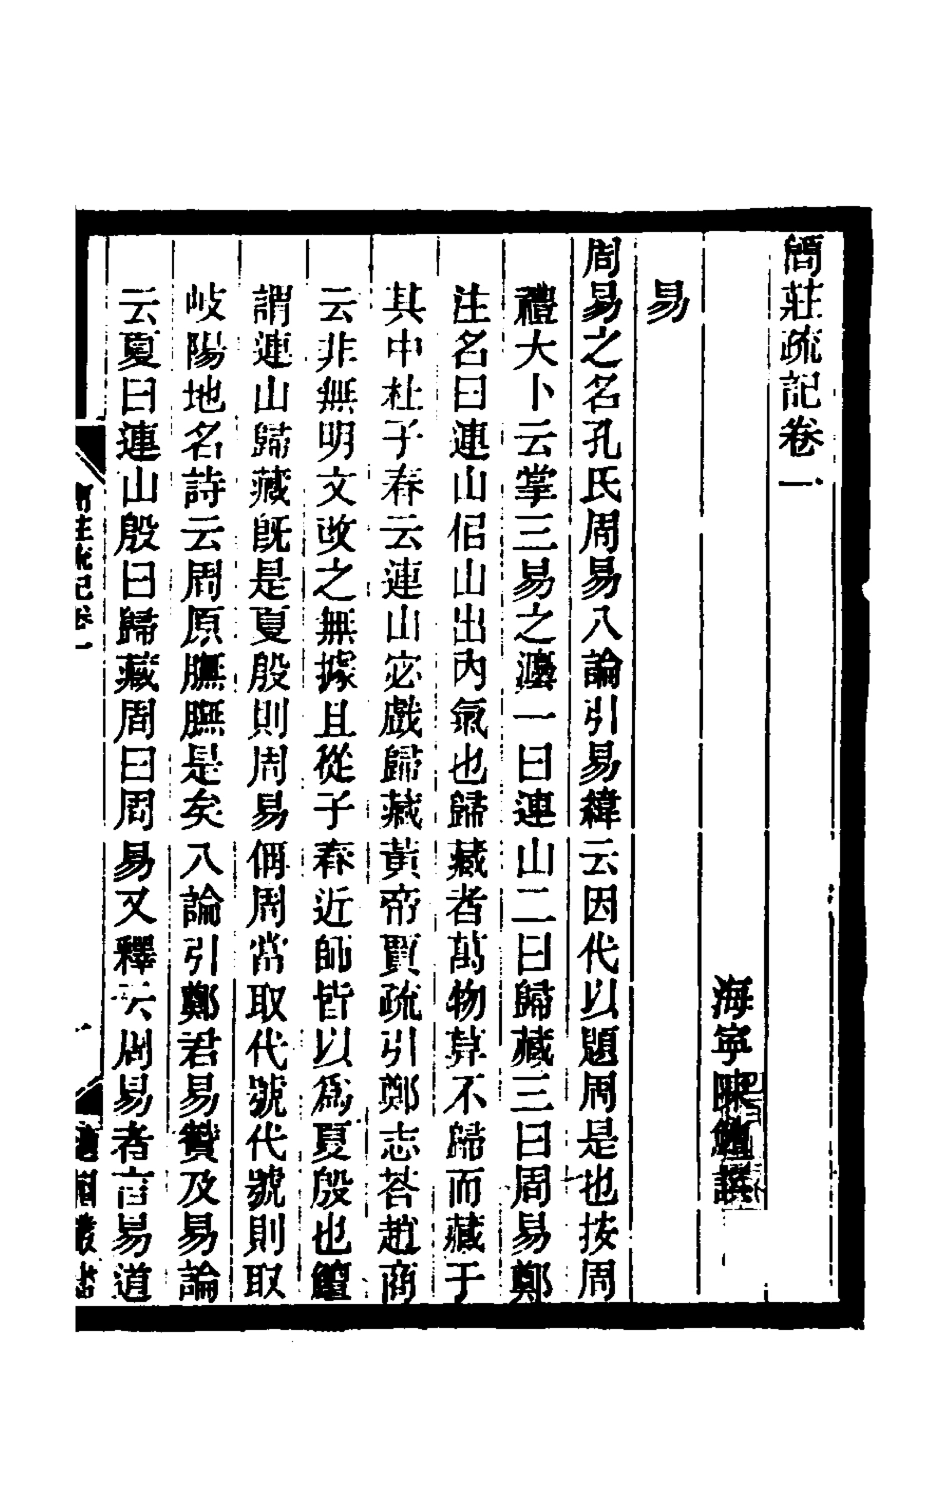 簡莊疏記卷一
海寧陳鱣譔
易
周易之名孔氏周易八論引易緯云因代以題周是也按周
禮大卜云掌三易之灋一曰連山二曰歸藏三曰周易鄭
注名曰連山侣山出內氣也歸藏者萬物莫不歸而藏于
其中杜子春云連山宓戲歸藏黃帝賈疏引鄭志荅趙商
云非無明文改之無據且從子春近師皆以為夏殷也鱣
謂連山歸藏旣是夏殷則周易偁周當取代號代號則取
岐陽地名詩云周原膴膴是矣八論引鄭君易贊及易論
云夏曰連山殷曰歸藏周曰周易又釋云周易者言易道
簡莊疏記卷一
一
適園叢書